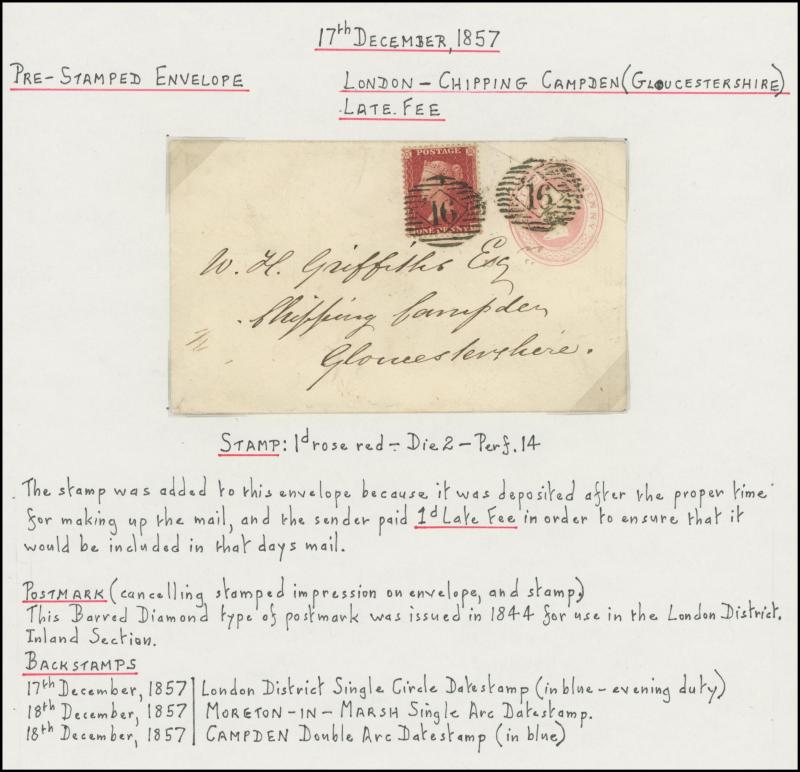 17th DECEMBER, 1857
PRE-STAMPED ENVELOPE
LONDON - CHIPPING CAMPDEN (GLOUCESTERSHIRE)
LATE. FEE
POSTAGE
16
ONE PENNY
16
PENNY
W. H. Griffiths Esq
Chipping Campden
Gloucestershire.
STAMP: 1d rose red - Die 2 - Perf. 14
The stamp was added to this envelope because it was deposited after the proper time
for making up the mail, and the sender paid 1d Late Fee in order to ensure that it
would be included in that days mail.
POSTMARK (cancelling stamped impression on envelope, and stamp.)
This Barred Diamond type of postmark was issued in 1844 for use in the London District.
Inland Section.
BACKSTAMPS
17th December, 1857 | London District Single Circle Datestamp (in blue - evening duty)
18th December, 1857 | MORETON-IN-MARSH Single Arc Datestamp.
18th December, 1857 | CAMPDEN Double Arc Datestamp (in blue)